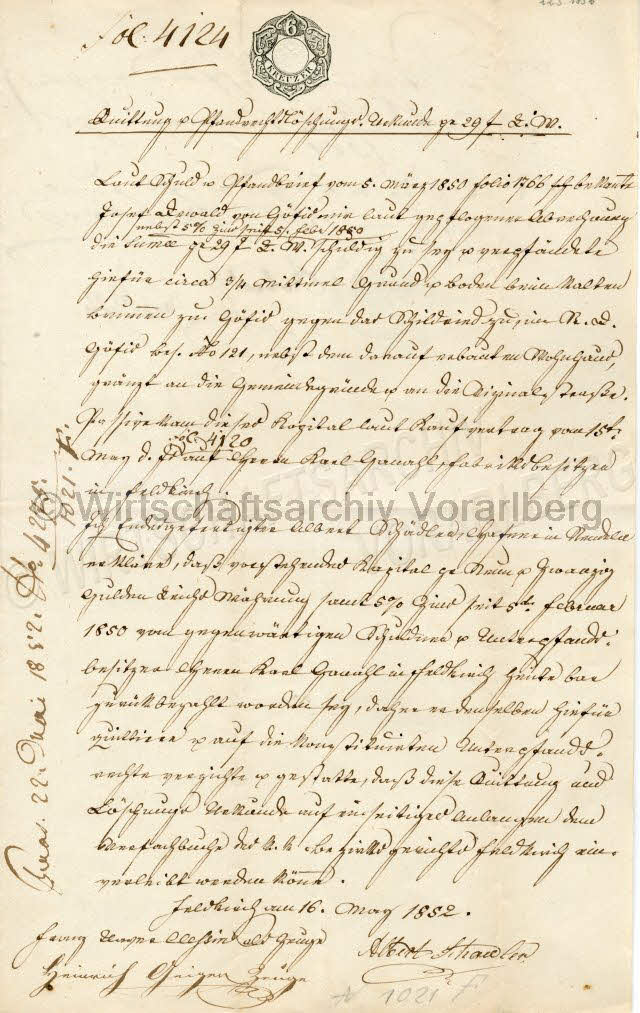 Fol. 4124
6
KREUZER
Quittung u Pfandrechtslöschungs-Urkunde pr 29 f R. W.
Laut Schuld u Pfandbrief vom 5. März 1850 folio 1766 ff bekannte
Josef Ostwald von Göfis mir laut gepflogener Abrechnung
nebst 5% Zins seit 5. Febr 1850
die Summe pr 29 f R. W. schuldig zu sey u verpfändete
hiefür circa 3/4 Mittmel Grund u Boden beim Kalten
brunnen zu Göfis gegen das Schildried zu, im St. B.
Göfis bes. No 121, nebst dem darauf erbauten Wohnhaus,
gränzt an die Gemeindegründe u an die Vizinalstrasse.
Passive kam dieses Kapital laut Kaufvertrag vom 15t.
fol. 4120
May d. J. auf Herrn Karl Ganahl, Fabriksbesitzer
in Feldkirch.
Ich Endesgefertigter Albert Schädler, Hafner in Nendeln
erkläre, daß vorstehendes Kapital pr Neun u Zwanzig
Gulden Reichs Währung samt 5% Zins seit 5ten Februar
1850 vom gegenwärtigen Schuldner u Unterpfands-
besitzer Herrn Karl Ganahl in Feldkirch heute bar
zurückbezahlt worden sey, daher er denselben hiefür
quittiere u auf die konstituierten Unterpfands-
rechte verzichte u gestatte, daß diese Quittung und
Löschungs Urkunde auf einseitiges Anlangen dem
Verfachbuche des k. k. Bezirksgerichts Feldkirch ein-
verleibt werden könne.
Feldkirch am 16. May 1852.
Franz als Zeuge
Albert Schaedler
Heinrich Geiger Zeuge
1021 F
Praes. 22. Mai 1852. No
1021. F.
Wirtschaftsarchiv Vorarlberg